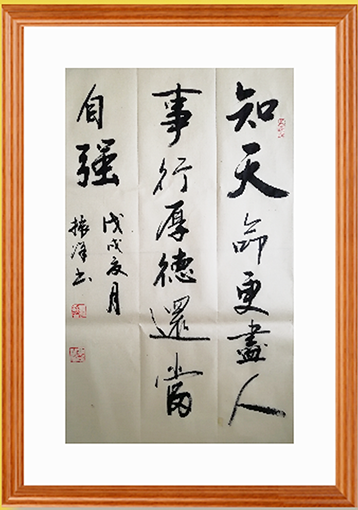 知天命更盡人
事行厚德還當
自强
戊戌夏月
振洋书